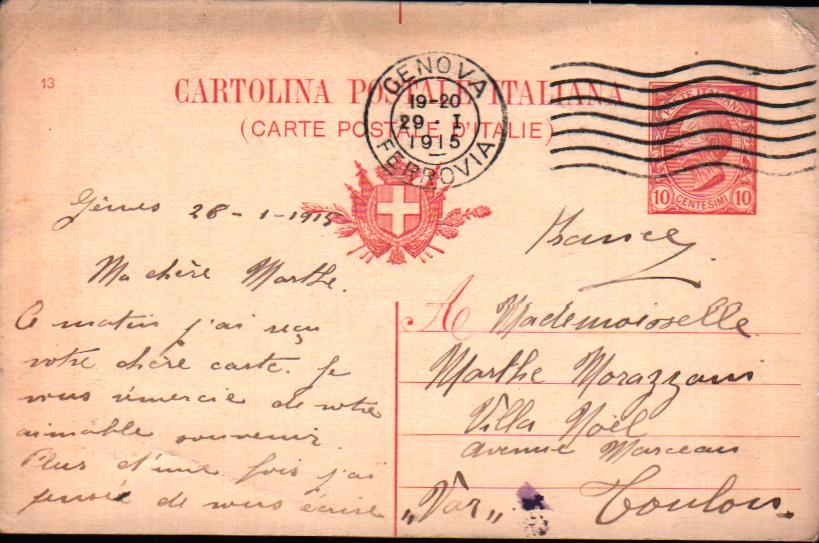 13
CARTOLINA POSTALE ITALIANA
(CARTE POSTALE D'ITALIE)
GENOVA
19-20
29·I
1915
FERROVIA
POSTE ITALIANE
10 CENTESIMI 10
Gênes 28-1-1915
Ma chère Marthe.
Ce matin j'ai reçu
votre chère carte. Je
vous remercie de votre
aimable souvenir.
Plus d'une fois j'ai
pensé de vous écrire
France
A Mademoiselle
Marthe Morazzani
Villa Noël
avenue Marceau
"Var" Toulon.